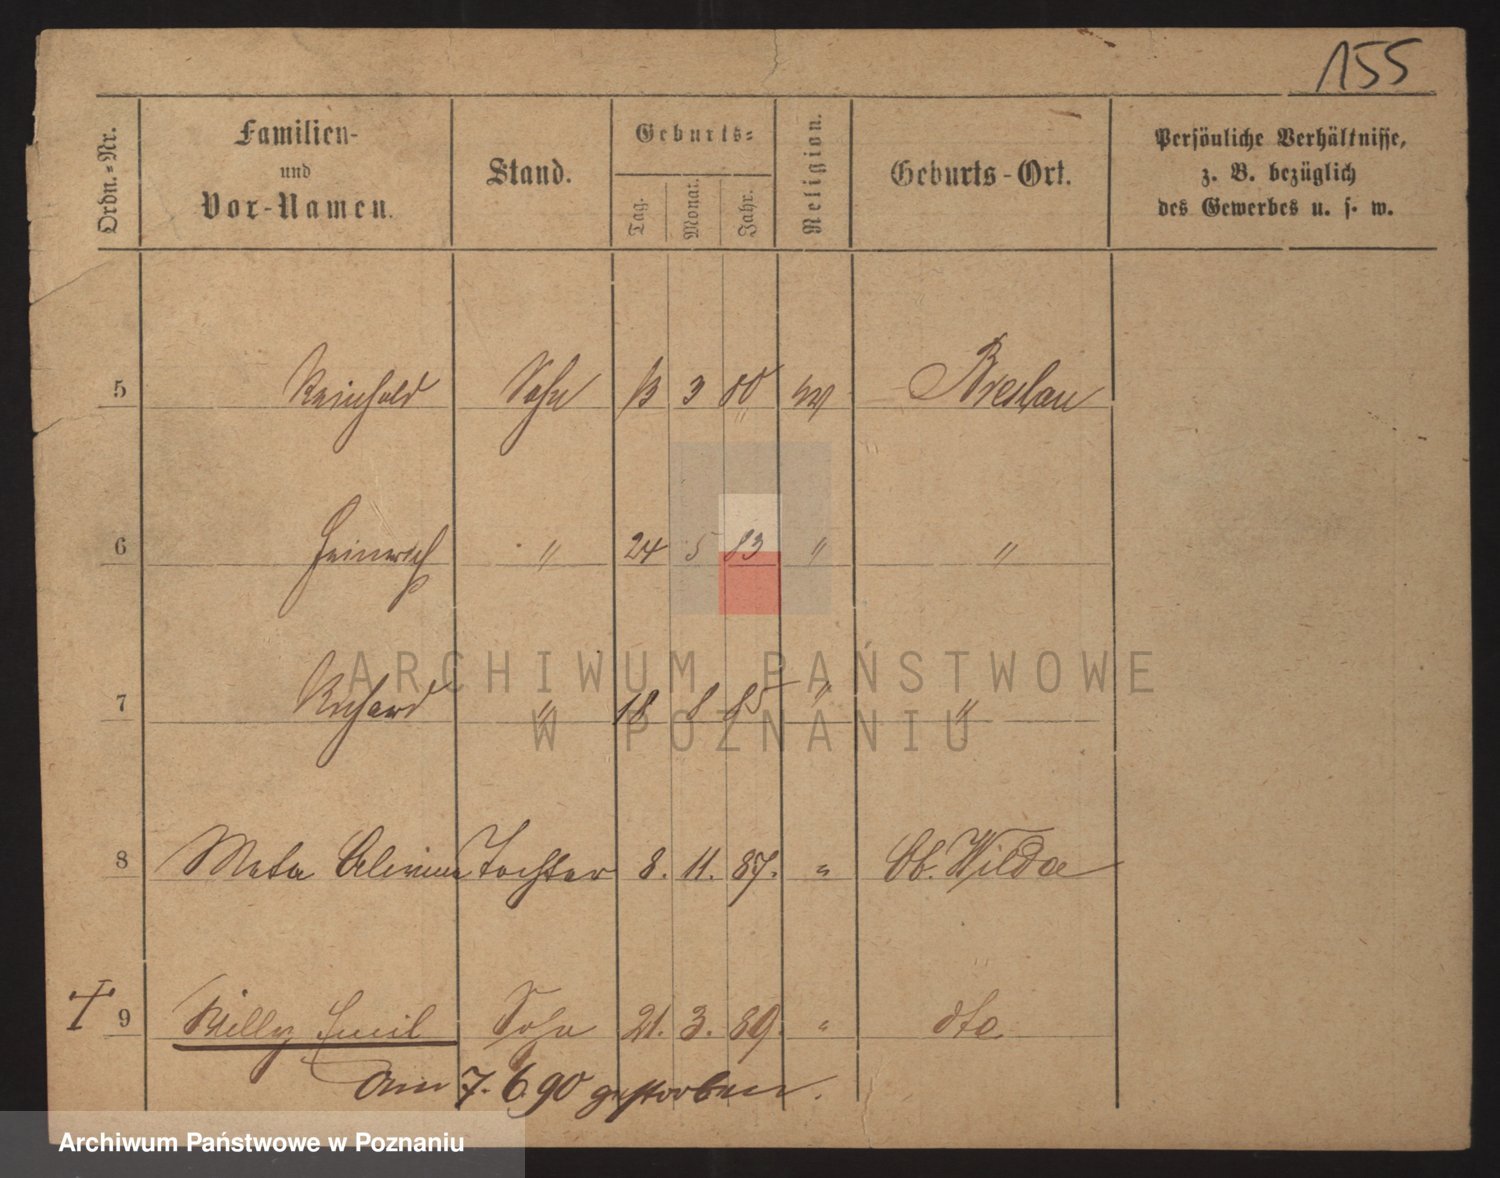 155
Ordn.-Nr.
Familien-
und
Vor-Namen.
Stand.
Geburts-
Tag.
Monat.
Jahr.
Religion.
Geburts-Ort.
Persönliche Verhältnisse,
z. B. bezüglich
des Gewerbes u. s. w.
5 Reinhold Sohn 13 3 80 ev Breslau
6 Heinrich " 24 5 83 " "
7 Richard " 18 8 85 " "
8 Meta Tochter 8. 11. 87. " Ob. Wilda
† 9 Willy Emil Sohn 21. 3. 89. " dto
Am 7. 6. 90 gestorben.
ARCHIWUM PAŃSTWOWE
W POZNANIU
Archiwum Państwowe w Poznaniu